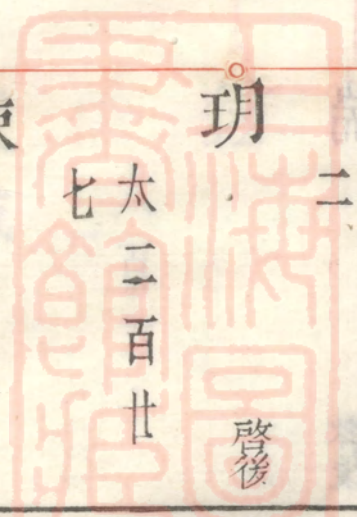 二
玥
啓後
太二百廿
七